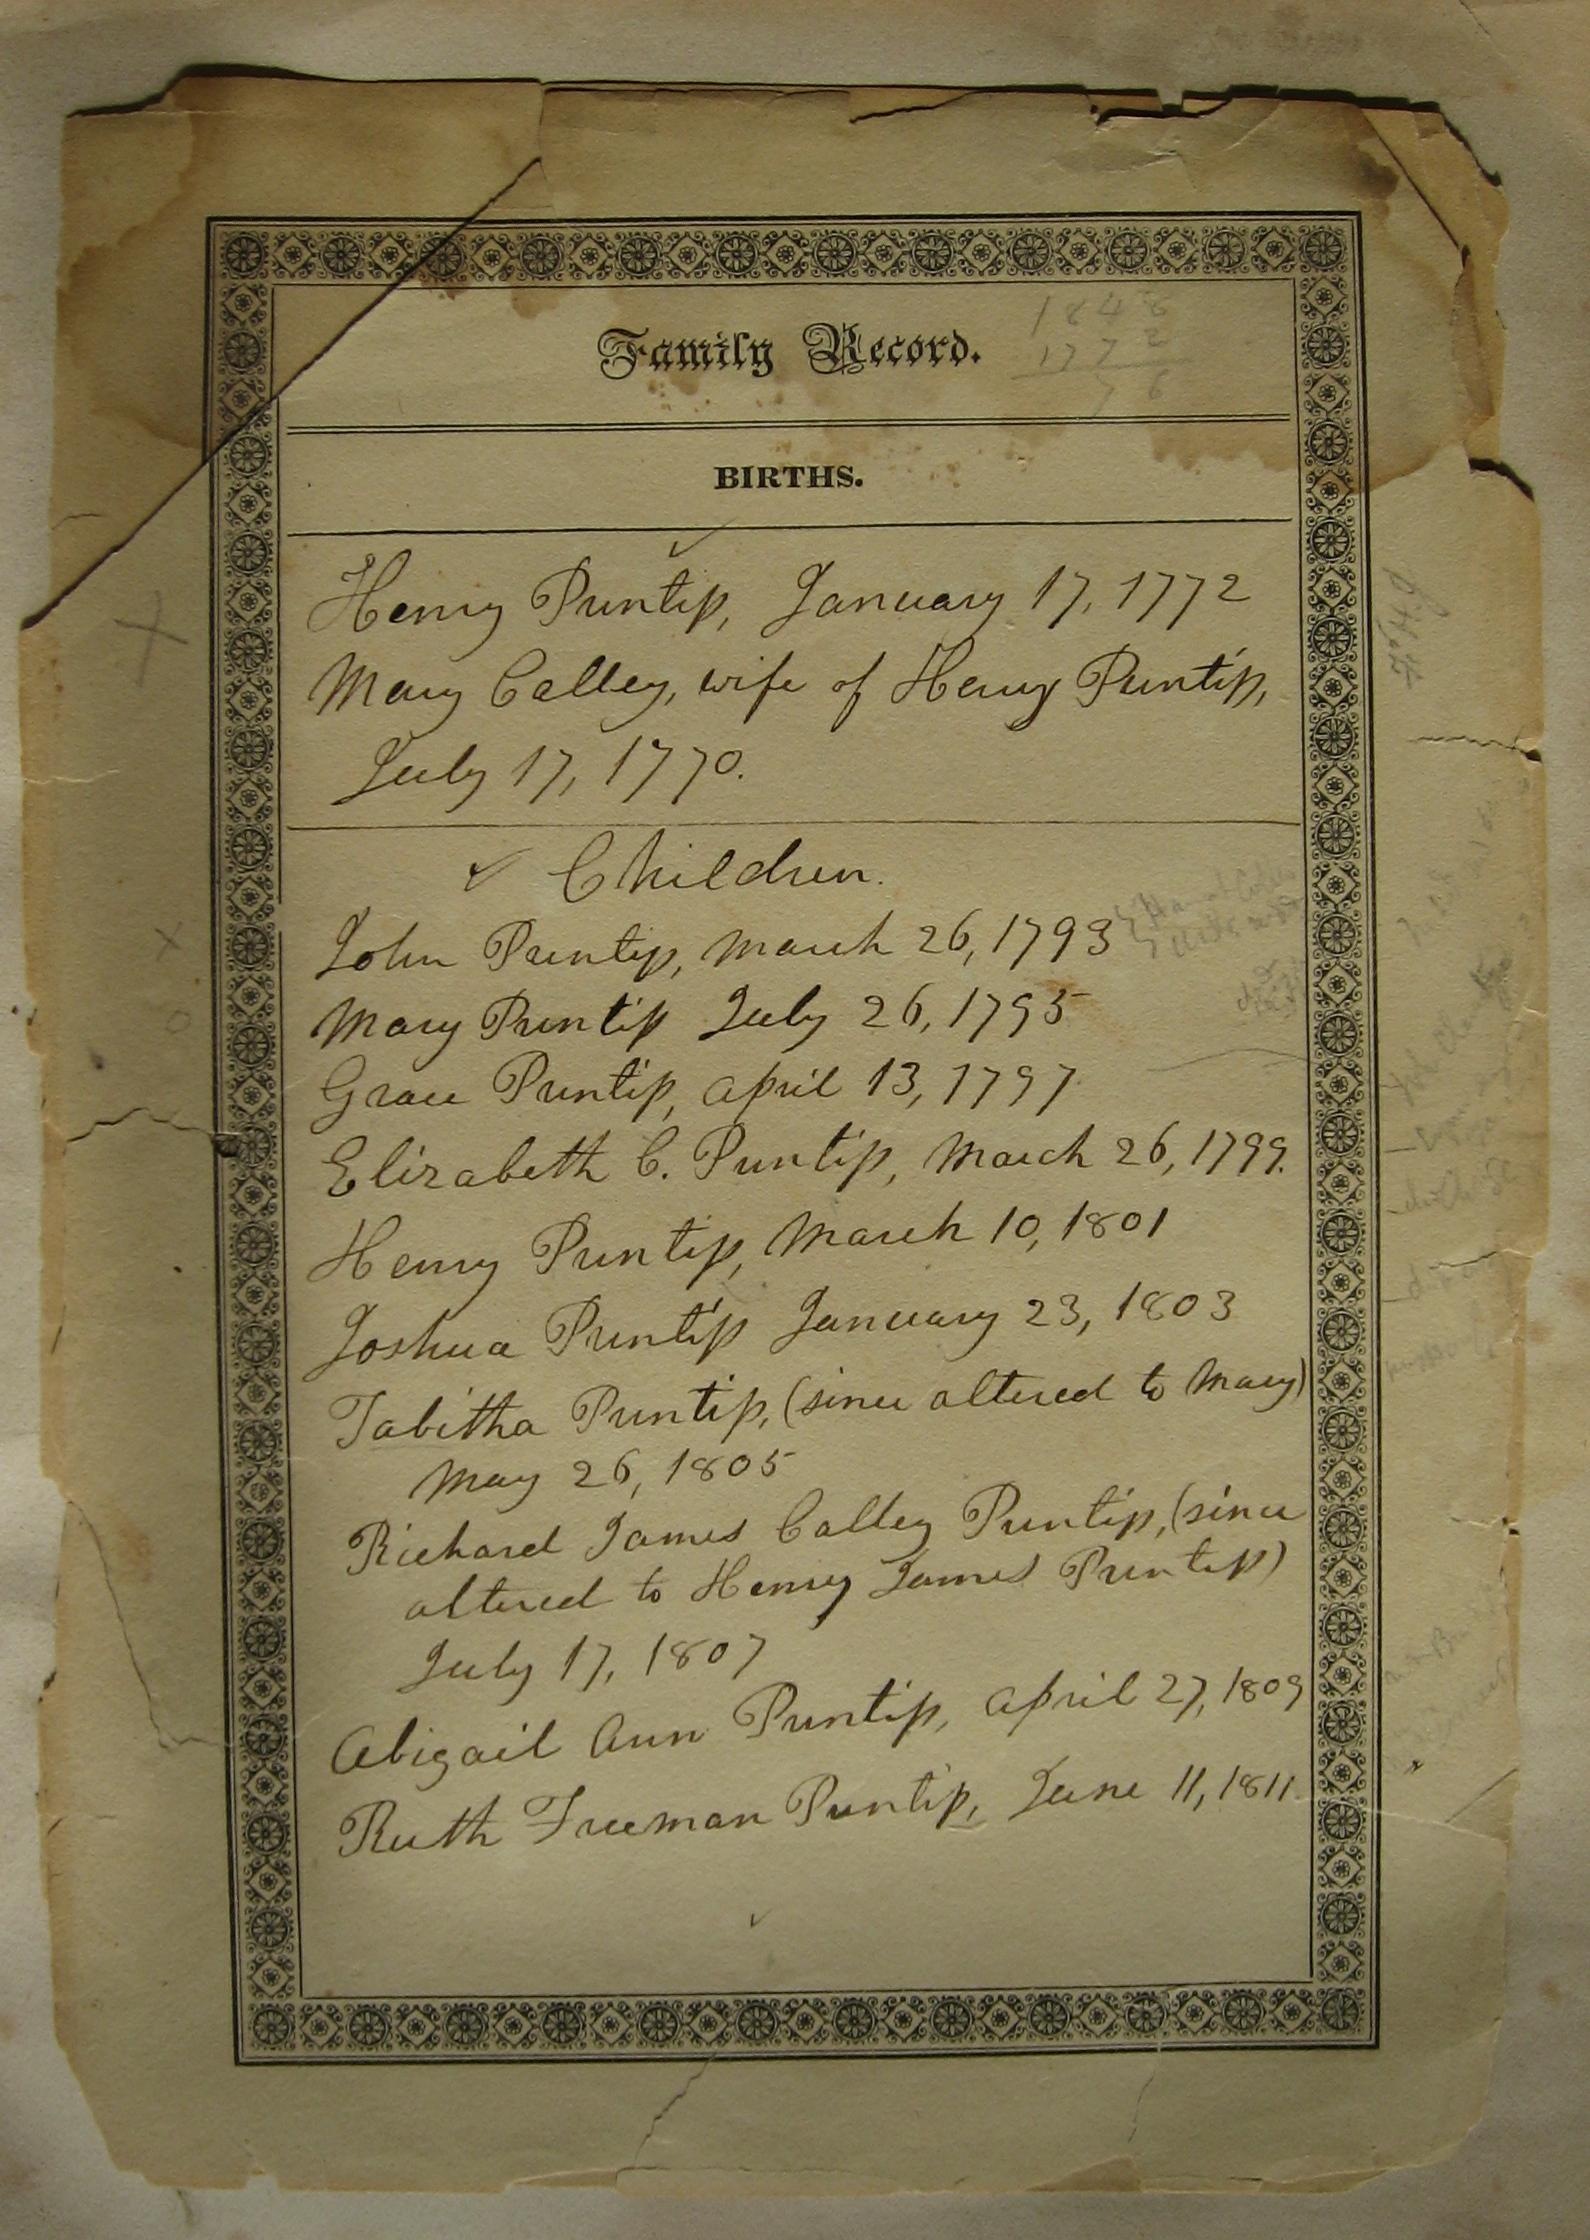 Family Record.
1848
1772
76
BIRTHS.
Henry Puntip, January 17, 1772
Mary Calley, wife of Henry Puntip,
July 17, 1770.
Children.
John Puntip, March 26, 1793
Mary Puntip July 26, 1795
Grace Puntip, April 13, 1797
Elizabeth C. Puntip, March 26, 1799.
Henry Puntip, March 10, 1801
Joshua Puntip January 23, 1803
Tabitha Puntip, (since altered to Mary)
May 26, 1805
Richard James Calley Puntip, (since
altered to Henry James Puntip)
July 17, 1807
Abigail Ann Puntip, April 27, 1809
Ruth Freeman Puntip, June 11, 1811.